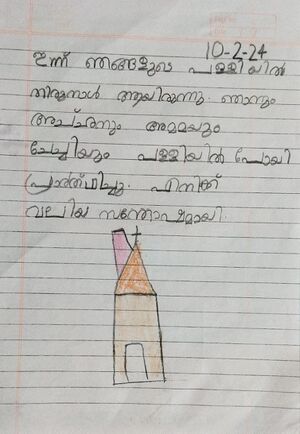 10-2-24
ഇന്ന് ഞങ്ങളുടെ പള്ളിയിൽ
തിരുനാൾ ആയിരുന്നു. ഞാനും
അച്ഛനും അമ്മയും
ചേച്ചിയും പള്ളിയിൽ പോയി
പ്രാർത്ഥിച്ചു. എനിക്ക്
വലിയ സന്തോഷമായി.